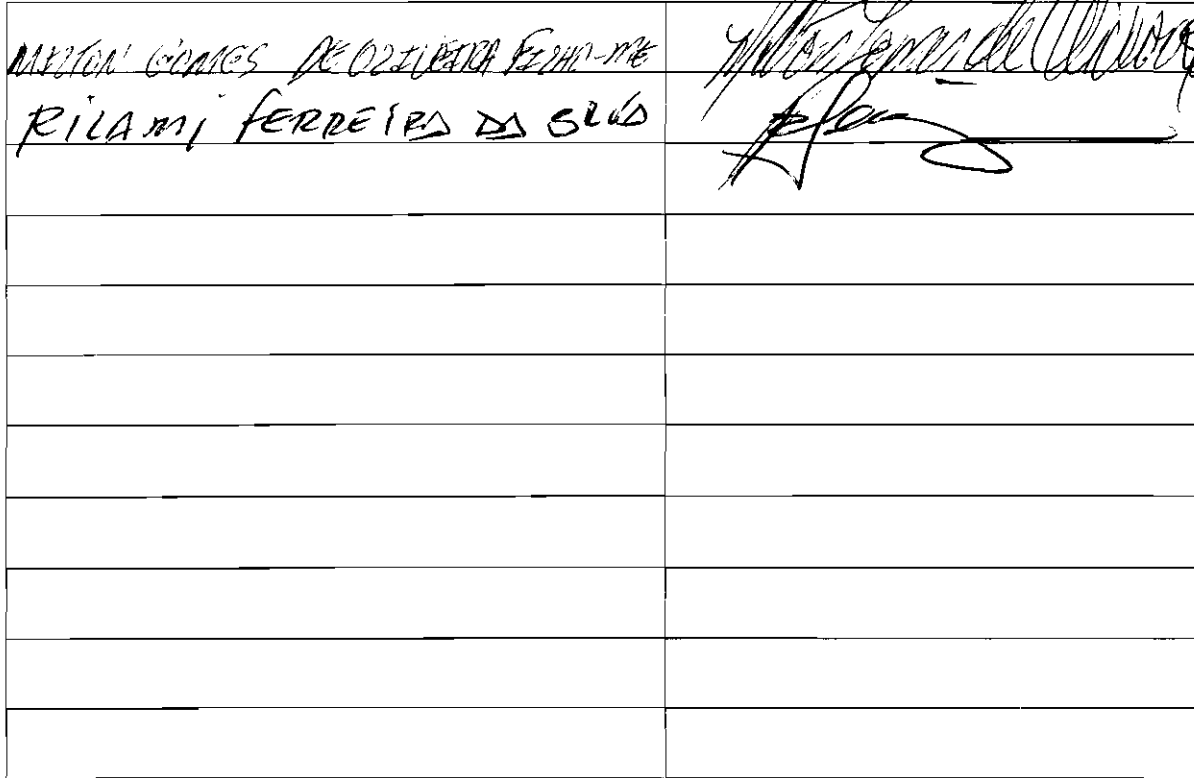 MILTON GOMES DE OLIVEIRA FILHO-ME Milton Gomes de Oliveira
RILAMI FERREIRA DA SILVA